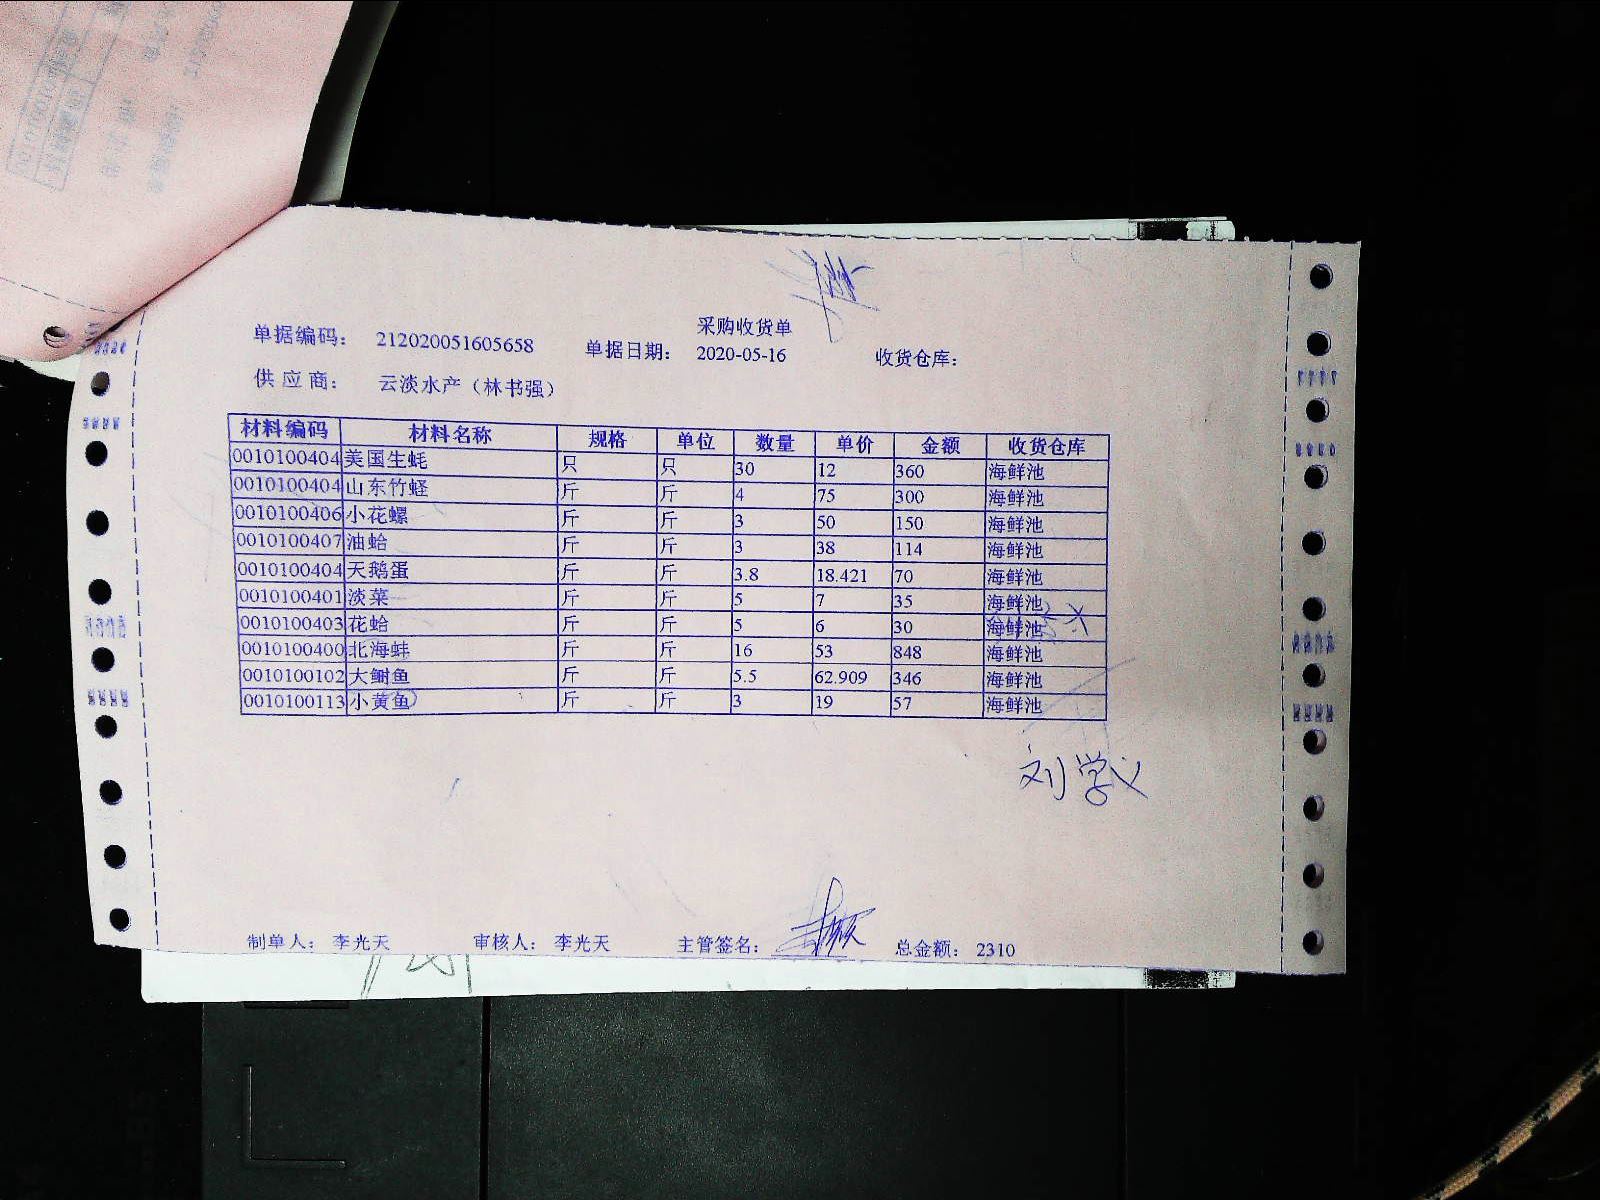 采购收货单
单据编码： 212020051605658 单据日期： 2020-05-16 收货仓库：
供应商： 云淡水产（林书强）
材料编码 材料名称 规格 单位 数量 单价 金额 收货仓库
0010100404 美国生蚝 只 只 30 12 360 海鲜池
0010100404 山东竹蛏 斤 斤 4 75 300 海鲜池
0010100406 小花螺 斤 斤 3 50 150 海鲜池
0010100407 油蛤 斤 斤 3 38 114 海鲜池
0010100404 天鹅蛋 斤 斤 3.8 18.421 70 海鲜池
0010100401 淡菜 斤 斤 5 7 35 海鲜池
0010100403 花蛤 斤 斤 5 6 30 海鲜池
0010100400 北海蚌 斤 斤 16 53 848 海鲜池
0010100102 大鲥鱼 斤 斤 5.5 62.909 346 海鲜池
0010100113 小黄鱼 斤 斤 3 19 57 海鲜池
刘学义
制单人： 李光天 审核人： 李光天 主管签名： 总金额： 2310